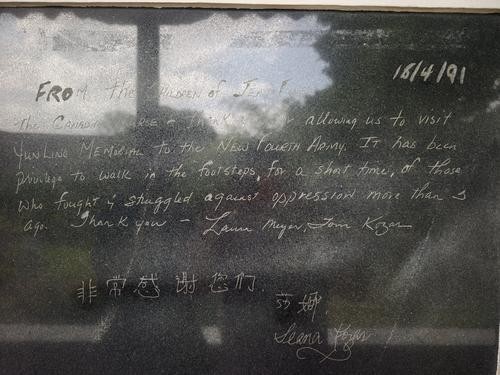 16/4/91
FROM the Children of Jean
The Canadian Nurse - Thank for allowing us to visit
YunLing Memorial to the New Fourth Army. It has been
privilege to walk in the footsteps, for a short time, of those
who fought & struggled against oppression more than
ago. Thank you - Laura Meyer, Tom Kozar
非常感谢您们
莎娜
Leana Kozar